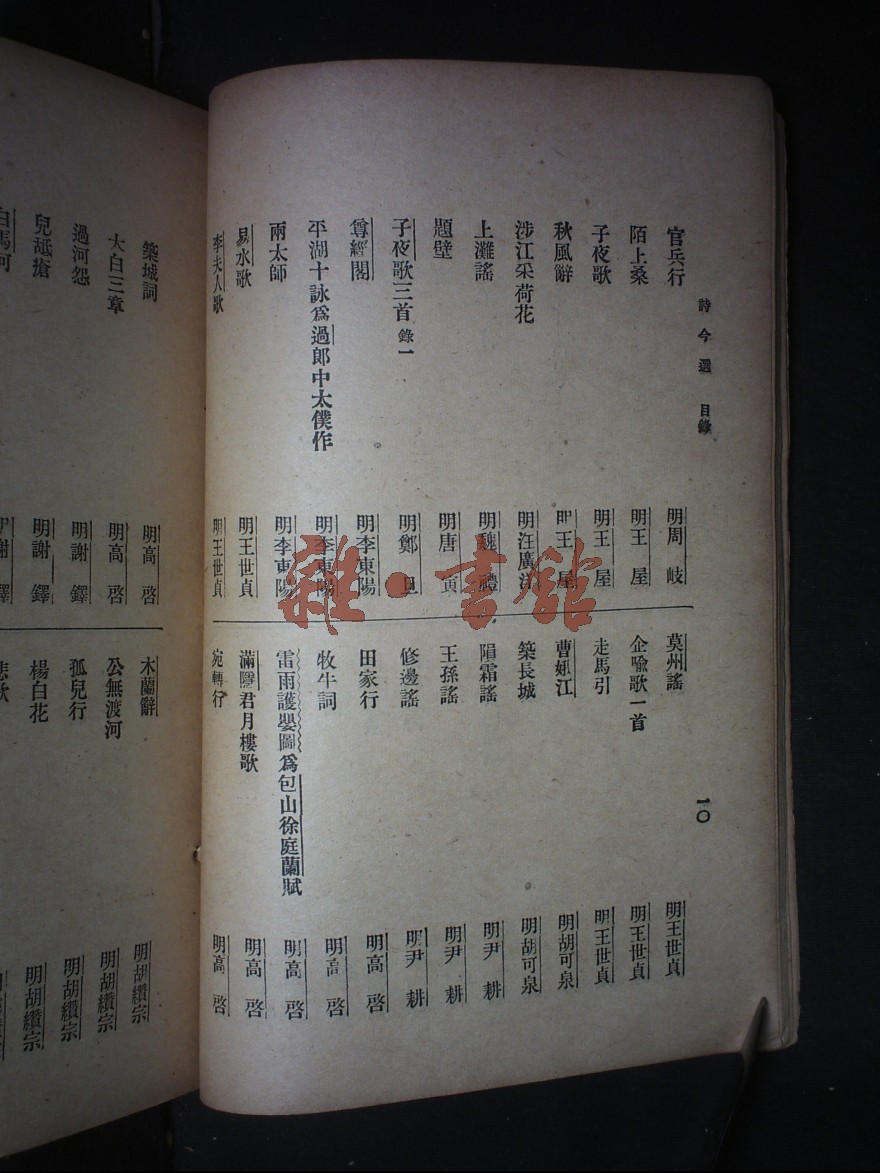 詩今選 目錄
一〇
官兵行 明周岐
陌上桑 明王屋
子夜歌 明王屋
秋風辭 明王屋
涉江采荷花 明汪廣洋
上灘謠 明魏禮
題壁 明唐寅
子夜歌三首 錄一 明鄭旦
尊經閣 明李東陽
平湖十詠爲過郎中太僕作 明李東陽
兩太師 明李東陽
易水歌 明王世貞
李夫人歌 明王世貞
莫州謠 明王世貞
企喩歌一首 明王世貞
走馬引 明王世貞
曹娥江 明胡可泉
築長城 明胡可泉
隕霜謠 明尹耕
王孫謠 明尹耕
修邊謠 明尹耕
田家行 明高啓
牧牛詞 明高啓
雷雨護嬰圖爲包山徐庭蘭賦 明高啓
君月樓歌 明高啓
宛轉行 明高啓
築城詞 明高啓
大白三章 明高啓
過河怨 明謝鐸
兒舐瘡 明謝鐸
白馬河 謝鐸
木蘭辭 明胡纘宗
公無渡河 明胡纘宗
孤兒行 明胡纘宗
楊白花 明胡纘宗
雜·書館